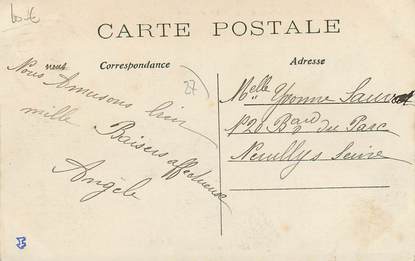 CARTE POSTALE
Correspondance
Adresse
27
Nous nous
Amusons bien
mille
Baisers affectueux
Angèle
Melle Yvonne
No 20 Bard du Parc
Neuilly s Seine